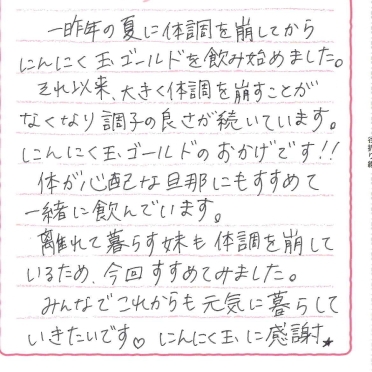 一昨年の夏に体調を崩してから
にんにく玉ゴールドを飲み始めました。
それ以来、大きく体調を崩すことが
なくなり調子の良さが続いています。
にんにく玉ゴールドのおかげです!!
体が心配な旦那にもすすめて
一緒に飲んでいます。
離れて暮らす妹も体調を崩して
いるため、今回すすめてみました。
みんなでこれからも元気に暮らして
いきたいです♡ にんにく玉に感謝★